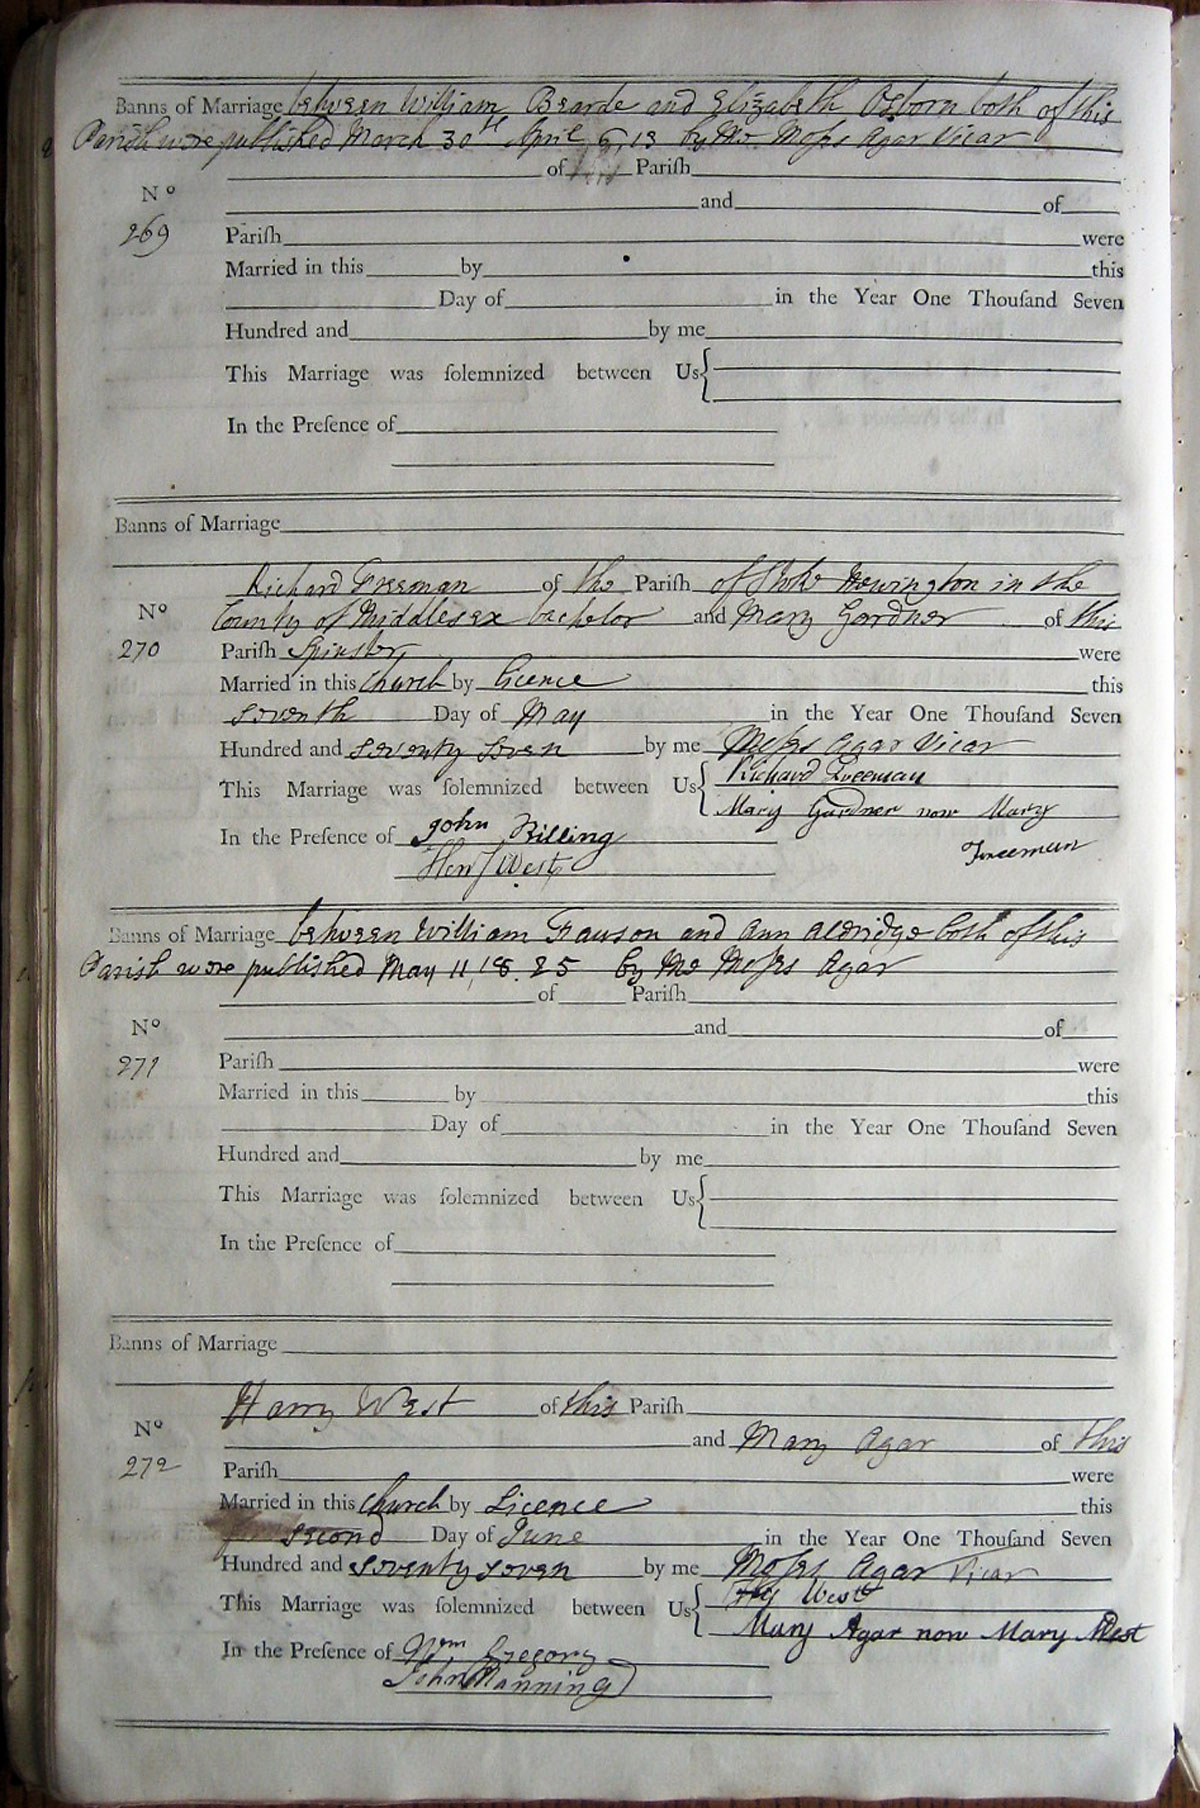 Banns of Marriage between William Bearde and Elizabeth Osborn both of this
Parish were published March 30th April 6, 13 by Me Moſes Agar Vicar
of Pariſh
No and of
269 Pariſh were
Married in this by this
Day of in the Year One Thouſand Seven
Hundred and by me
This Marriage was ſolemnized between Us
In the Preſence of
Banns of Marriage
Richard Freeman of the Pariſh of Stoke Newington in the
No County of Middlesex bachelor and Mary Gardner of this
270 Pariſh Spinster were
Married in this Church by licence this
seventh Day of May in the Year One Thouſand Seven
Hundred and seventy seven by me Moſes Agar Vicar
This Marriage was ſolemnized between Us Richard Freeman
Mary Gardner now Mary
Freeman
In the Preſence of John Billing
Hen West
Banns of Marriage between William Frauson and Ann Aldridge both of this
Parish were published May 11, 18. 25 by Me Moſes Agar
of Pariſh
No and of
271 Pariſh were
Married in this by this
Day of in the Year One Thouſand Seven
Hundred and by me
This Marriage was ſolemnized between Us
In the Preſence of
Banns of Marriage
Harry West of this Pariſh
No and Mary Agar of this
272 Pariſh were
Married in this Church by Licence this
second Day of June in the Year One Thouſand Seven
Hundred and seventy seven by me Moſes Agar Vicar
This Marriage was ſolemnized between Us Hy West
Mary Agar now Mary West
In the Preſence of Wm Gregory
John Manning